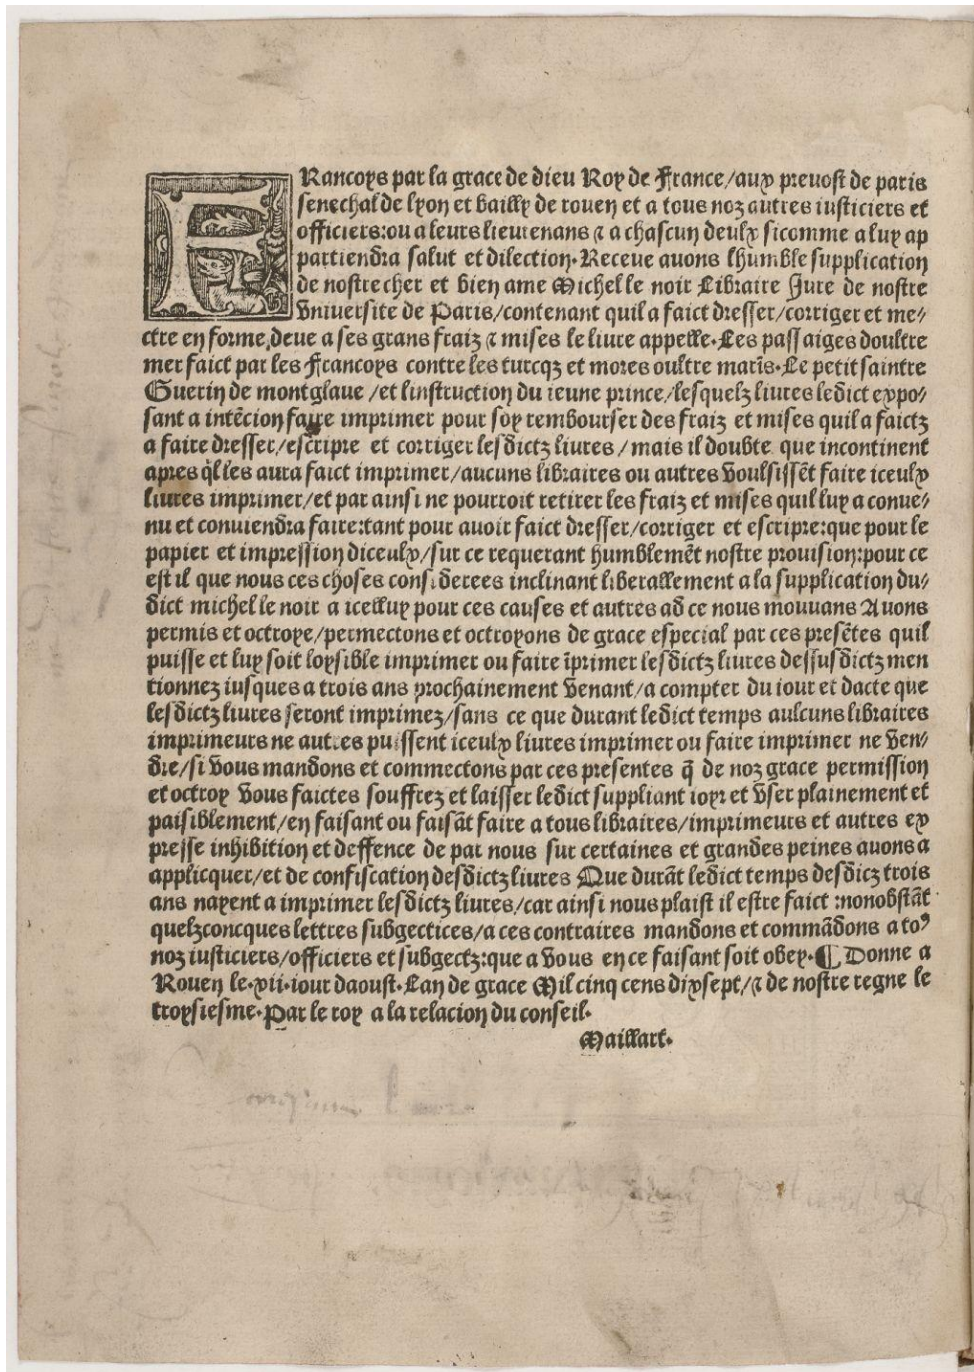 FRancoys par la grace de dieu Roy de France/aux prevost de paris
senechal de lyon et bailly de rouen et a tous noz autres iusticiers et
officiers:ou a leurs lieutenans ⁊ a chascun deulx sicomme a luy ap
partiendra salut et dilection. Receue avons lhumble supplication
de nostre cher et bien ame Michel le noir Libraire Jure de nostre
vniuersite de Paris/contenant quil a faict dresser/corriger et me/
ctre en forme deue a ses grans fraiz ⁊ mises le liure appelle. Les passaiges doultre
mer faict par les Francoys contre les turcqz et mores oultre marīs. Le petit saintre
Guerin de montglaue /et linstruction du ieune prince/lesquelz liures ledict expo/
sant a intēcion faire imprimer pour soy rembourser des fraiz et mises quil a faictz
a faire dresser/escripre et corriger lesdictz liures / mais il doubte que incontinent
apres q̄l les aura faict imprimer/aucuns libraires ou autres voulsissēt faire iceulx
liures imprimer/et par ainsi ne pourroit retirer les fraiz et mises quil luy a conue/
nu et conuiendra faire:tant pour auoir faict dresser/corriger et escripre:que pour le
papier et impression diceulx/sur ce requerant humblemēt nostre prouision:pour ce
est il que nous ces choses considerees inclinant liberallement a la supplication du/
dict michel le noir a icelluy pour ces causes et autres ad ce nous mouuans Auons
permis et octroye/permectons et octroyons de grace especial par ces presētes quil
puisse et luy soit loysible imprimer ou faire īprimer lesdictz liures dessusdictz men
tionnez iusques a trois ans prochainement venant/a compter du iour et dacte que
lesdictz liures seront imprimez/sans ce que durant ledict temps aulcuns libraires
imprimeurs ne autres puissent iceulx liures imprimer ou faire imprimer ne ven/
dre/si vous mandons et commectons par ces presentes q̄ de noz grace permission
et octroy vous faictes souffrez et laisser ledict suppliant ioyr et vser plainement et
paisiblement/en faisant ou faisāt faire a tous libraires/imprimeurs et autres ex
presse inhibition et deffence de par nous sur certaines et grandes peines auons a
applicquer/et de confiscation desdictz liures Que durāt ledict temps desdicz trois
ans nayent a imprimer lesdictz liures/car ainsi nous plaist il estre faict :nonobstāt
quelzconcques lettres subgectices/a ces contraires mandons et commādons a toꝰ
noz iusticiers/officiers et subgectz:que a vous en ce faisant soit obey. ¶ Donne a
Rouen le.xii.iour daoust. Lan de grace Mil cinq cens dixsept/⁊ de nostre regne le
troysiesme. Par le roy a la relacion du conseil.
Maillart.